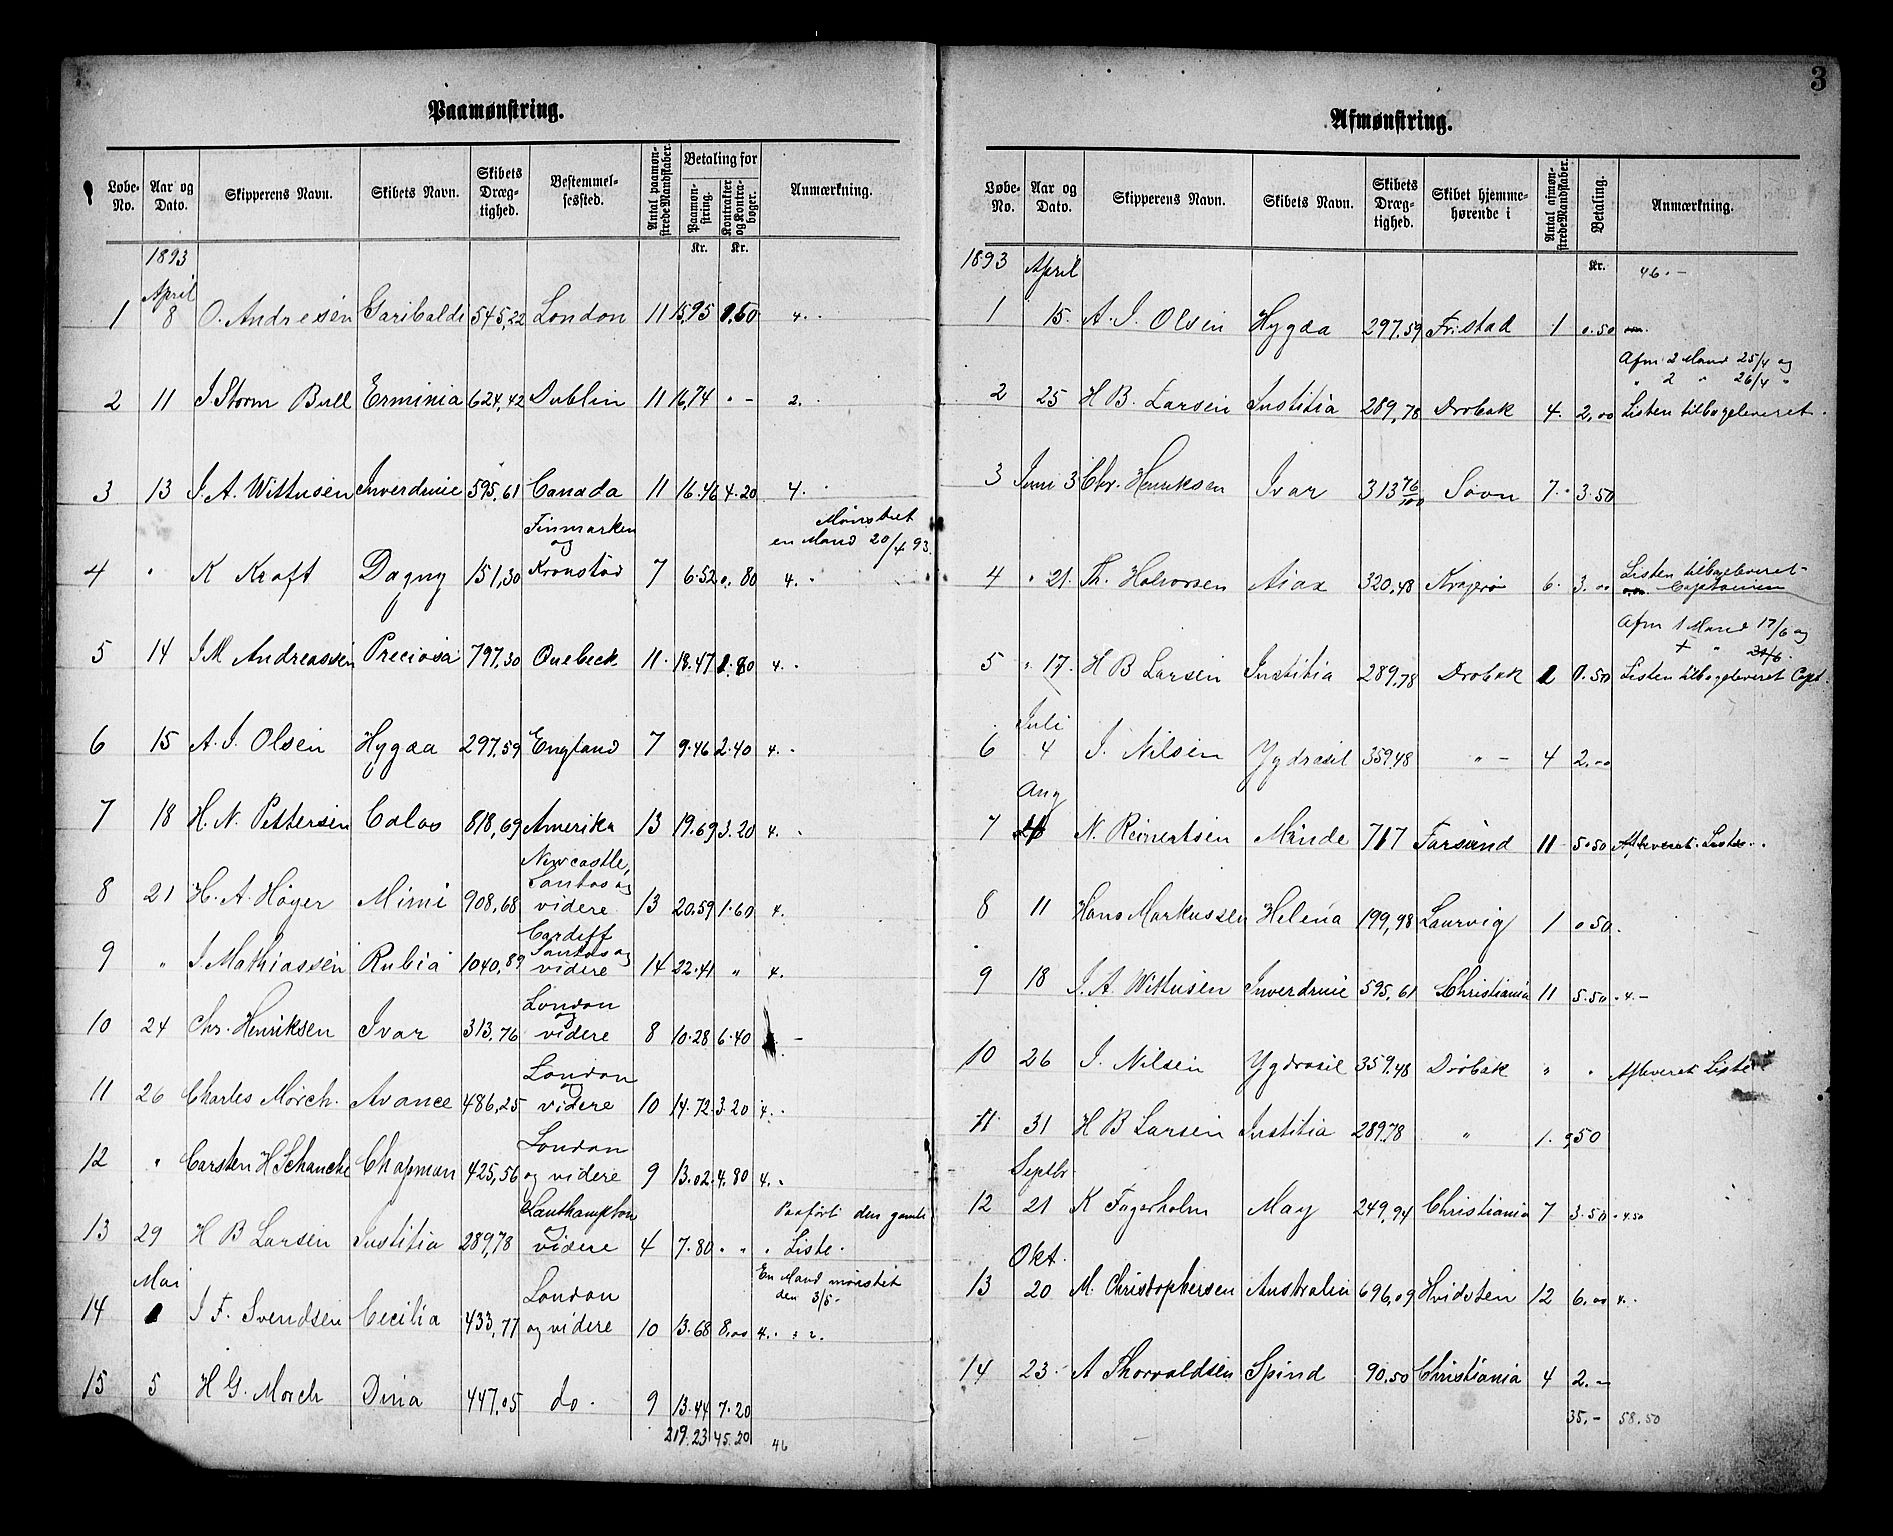 3
Paamønstring.
Løbe-No. Aar og Dato. Skipperens Navn. Skibets Navn. Skibets Dræg-tighed. Bestemmel-sessted. Antal paamøn-strede Mandskaber. Betaling for Paamøn-string. Kontrakter og Kontra-bøger. Anmærkning.
Kr. Kr.
1893
April
1 8 O. Andresen Garibaldi 545,22 London 11 15,95 0.60 4. -
2 11 J. Storm Bull Erminia 624,42 Dublin 11 16,74 " - 2. -
3 13 J. A. Wittusen Inverdruie 595,61 Canada 11 16.46 4.20 4. -
Finmarken Mønstret
og en Mand 20/4 93.
4 " K Kraft Dagny 151,30 Kronstad 7 6.52 0,80 4. -
5 14 J M Andreassen Preciosa 797,30 Quebeck 11 18.47 1.80 4. -
6 15 A. J. Olsen Hygæa 297,59 England 7 9.46 2.40 4. -
7 18 H. N. Pettersen Colas 818,69 Amerika 13 19.69 3.20 4. -
Newcastle,
Santos og
8 21 H. A. Høyer Mimi 908,68 videre 13 20.59 1.60 4.
Cardiff
Santos og
9 " J Mathiassen Rubia 1040,89 videre 14 22.41 " 4.
London
og
10 24 Chr. Henriksen Ivar 313,76 videre 8 10.28 6.40 -
London
og
11 26 Charles Mørch. Avance 486,25 videre 10 14.72 3.20 4. -
London
12 " Carsten H Schanche Chapman 425,56 og videre 9 13.02 4.80 4. -
Southampton Paaført den gamle
og
13 29 H B Larsen Justitia 289,78 videre 4 7.80 " " " Liste.
Mai London En Mand mønstret
den 3/5.
14 1 J F. Svendsen Cecilia 433,77 og videre 10 13.68 8,00 4. -
15 5 H G. Mørch Dina 447,05 do. 9 13.44 7.20
219.23 45.20 46
Afmønstring.
Løbe-No. Aar og Dato. Skipperens Navn. Skibets Navn. Skibets Dræg-tighed. Skibet hjemme-hørende i Antal afmøn-strede Mandskaber. Betaling. Anmærkning.
Kr.
1893 April 46. -
1 15. A. J. Olsen Hygæa 297,59 Fr:stad 1 0.50
Afm: 2 Mand 25/4 og
" 2 " 26/4 "
2 25 H B. Larsen Justitia 289,78 Drøbak 4. 2,00 Listen tilbageleveret.
3 Juni 3 Chr. Henriksen Ivar 313 76/100 Sovn 7. 3.50
Listen tilbageleveret
4 " 21. Th. Halvorsen Aiax 320,48 Kragerø 6. 3.00 Captainen
Afm 1 Mand 17/6 og
+ " 21/6.
5 " 17. H B Larsen Justitia 289,78 Drøbak 1 0.50 Listen tilbageleveret Capt.
Juli
6 4 J. Nilsen Ygdrasil 359,48 " - 4 2.00
Aug
7 N. Reinertsen Minde 717 Farsund 11 5.50 Afleveret Liste.
8 11 Hans Markussen Helena 199,98 Laurvig 1 0 50.
9 18 J. A. Wittusen Inverdruie 595,61 Christiania 11 5.50 " 4. -
10 26 J. Nilsen Ygdrasil 359,48 Drøbak " " Afleveret Liste
11 31 H B Larsen Justitia 289,78 " 1. 0,50
Septbr
12 21 K Fagerholm May 249,94 Christiania 7 3.50 " 4.50
Okt.
13 20 M. Christophersen Australia 696,09 Hvidsten 12 6.00 4. -
14 23. A Thorvaldsen Spind 90,50 Christiania 4 2. -
35. - 58.50